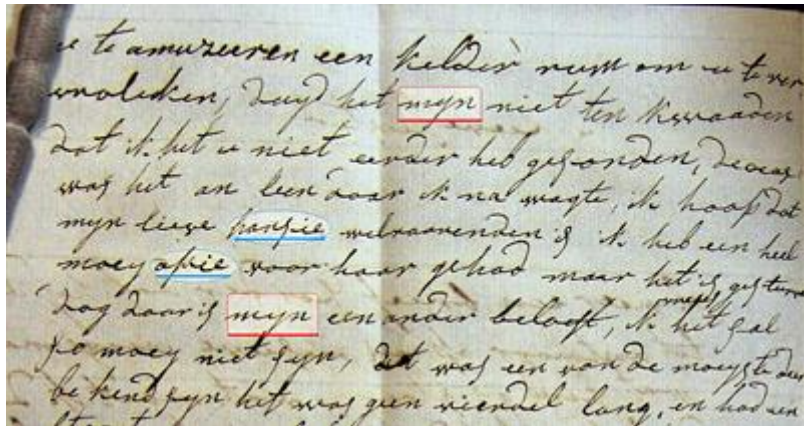 u te amuzeeren een kelder rum om u te ver
vroleken, duyd het myn niet ten kwaaden
dat ik het u niet eerder heb gesonden, decas
was het an leen daar ik na wagte, ik hoop dat
myn lieve pansie welvaarenden is ik heb een heel
moey apie voor haar gehad maar het is gesturve
dog daar is myn een ander belooft, ik het sal
so moey niet syn, dat was een van de moeyste die
bekend syn het was geen vierdel lang, en had een